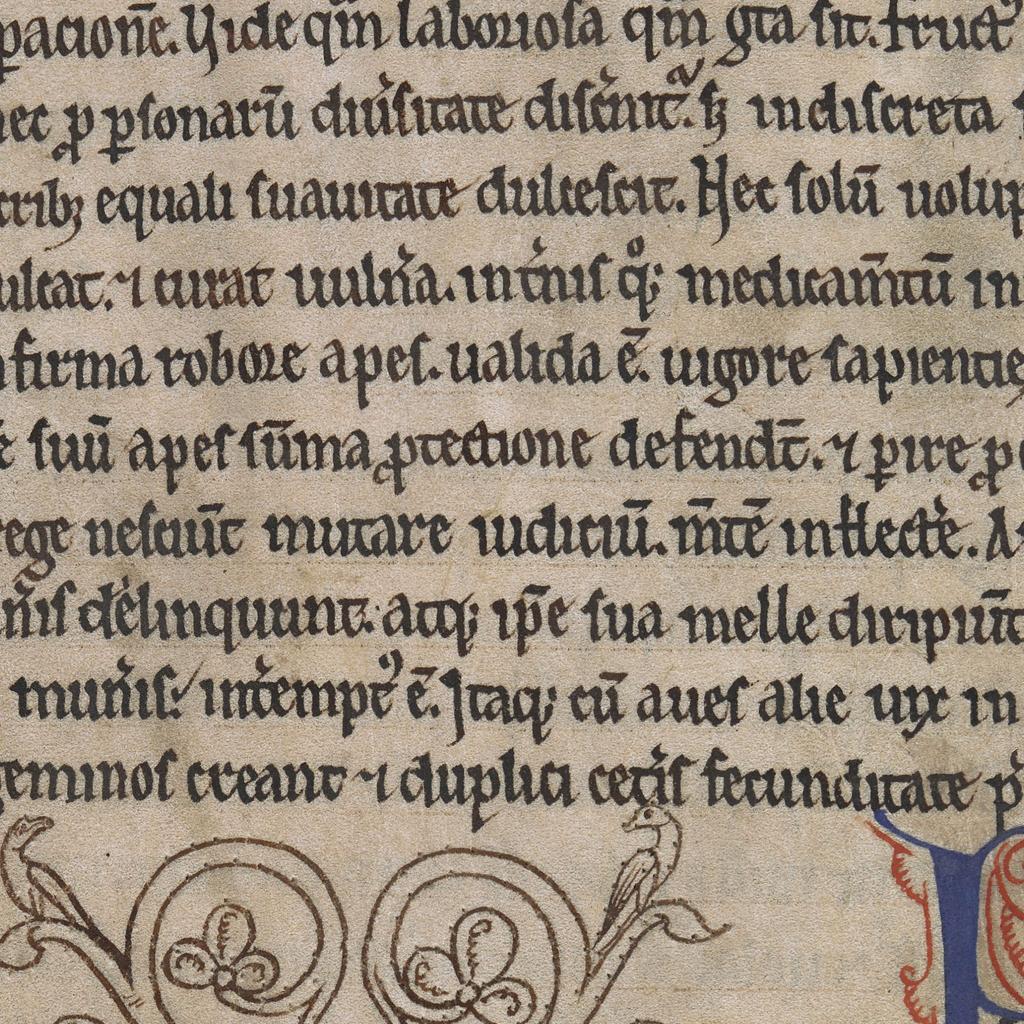 pacion̄e. Vide qm̄ laboriosa qm̄ gͣta sit. fructꝰ
nec ꝓ ꝑsonarū diuͥsitate discͥnitᷣ. sꝫ indiscreta
tribꝫ equali suauitate dulcescit. Hec solū uolup
ultat. ⁊ curat uulnͥa. intͥnis qͦꝫ medicam̄tū in
firma robore apes. ualida ē. uigore sapientie
suū apes sūma ꝓtectione defendt̄. ⁊ ꝑire ꝓ
rege nesciūt mutare iudiciū. m̄tē inflectͥe. A
delinquunt. atqꝫ ip̄e sua melle diripiūt
munͥis. intͥemptꝰ ē. Itaqꝫ cū aues alie uix in
geminos creant ⁊ duplici cetͥis fecunditate pͥ